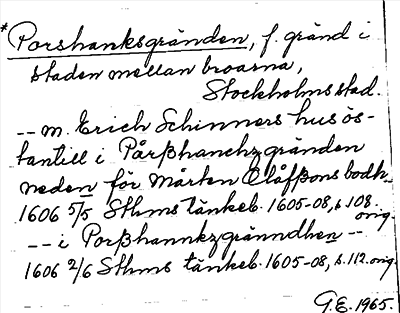 *Porshanksgränden, f. gränd i
staden mellan broarna,
Stockholms stad.
-- m. Erich Schinners hus ös-
tantill i Pårßhanchzgränden
neden för Mårten Olåfßons bodh
1606 5/5 Sthms tänkeb. 1605-08, s. 108.
orig.
-- i Porßhannkzgränndhen --
1606 2/6 Sthms tänkeb. 1605-08, s. 112. orig.
G.E. 1965.